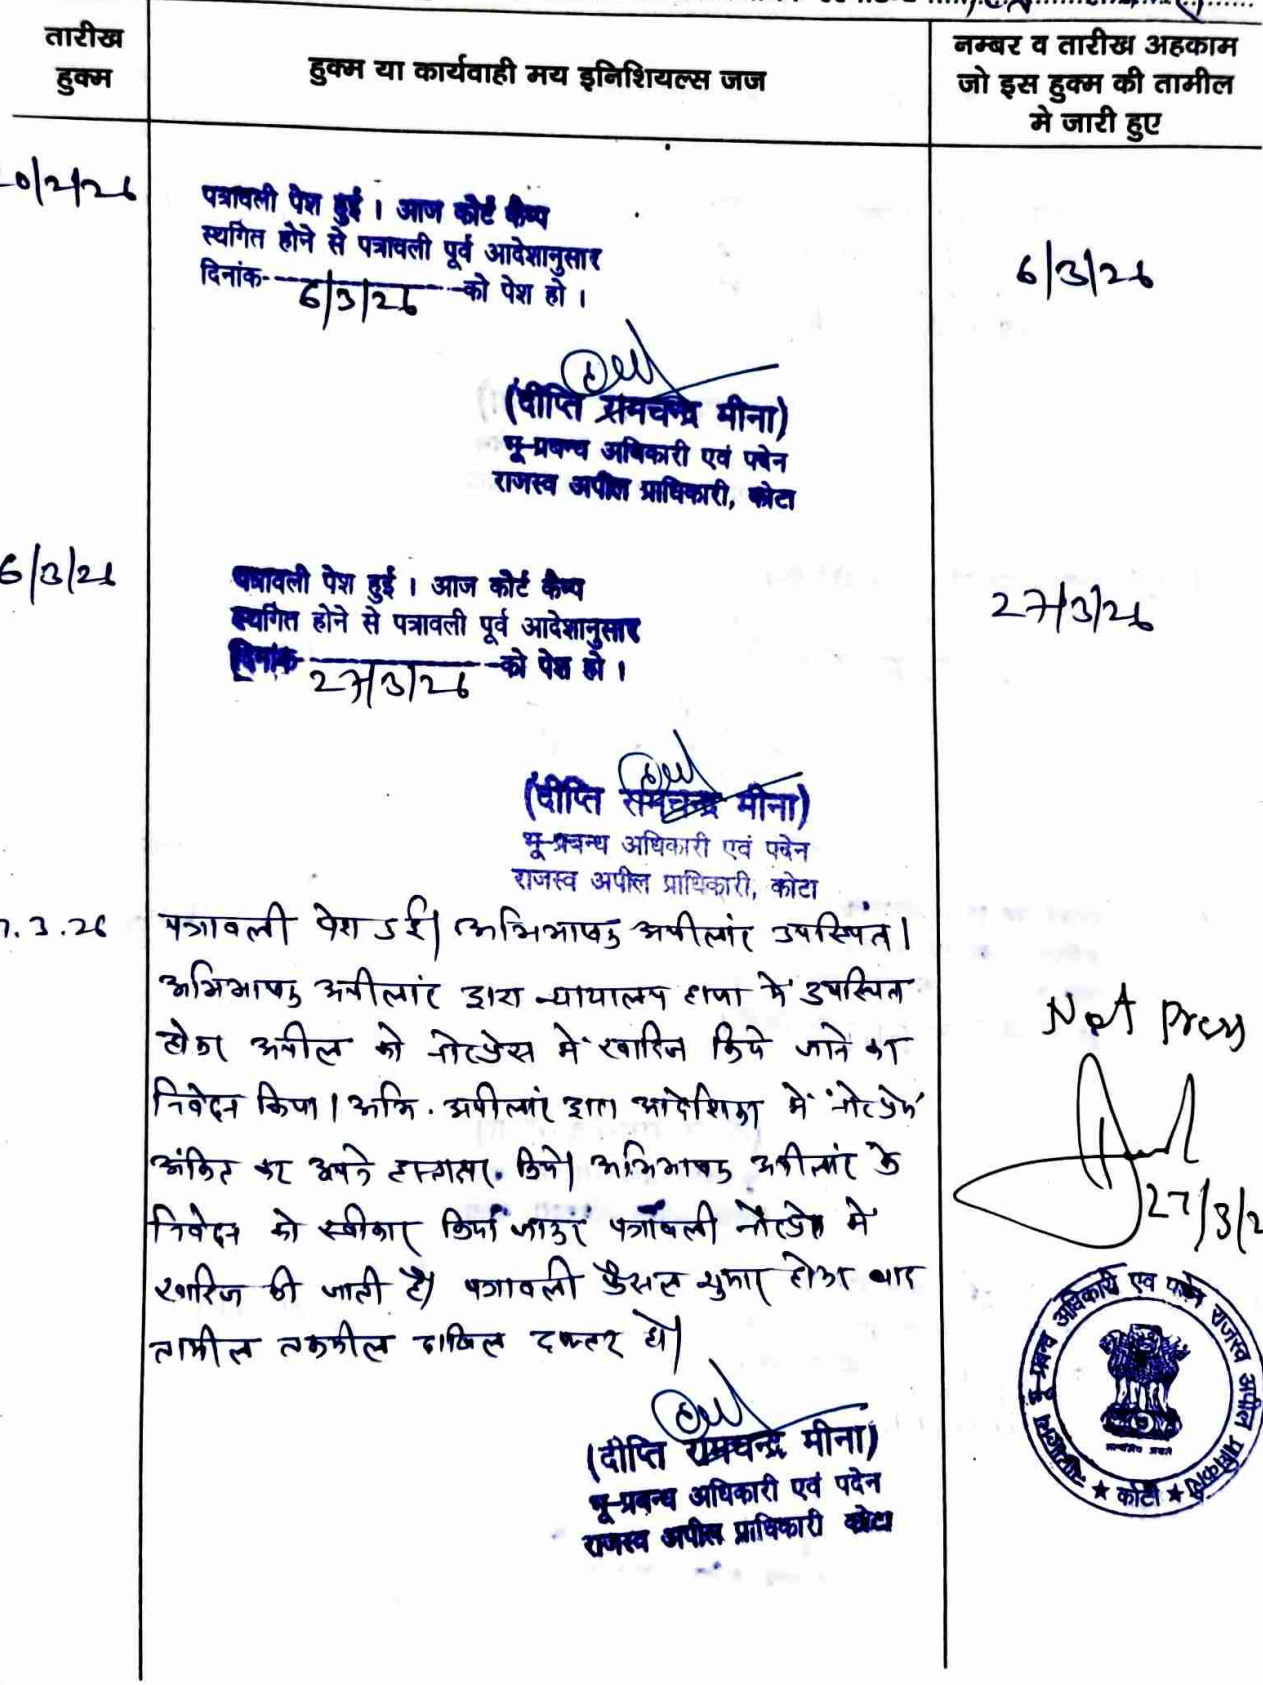 तारीख
हुक्म
हुक्म या कार्यवाही मय इनिशियल्स जज
नम्बर व तारीख अहकाम
जो इस हुक्म की तामील
मे जारी हुए
0/2/26
पत्रावली पेश हुई । आज कोर्ट कैम्प
स्थगित होने से पत्रावली पूर्व आदेशानुसार
दिनांक 6/3/26 को पेश हो ।
6/3/26
(दीप्ति रामचन्द्र मीना)
भू-प्रबन्ध अधिकारी एवं पदेन
राजस्व अपील प्राधिकारी, कोटा
6/3/26
पत्रावली पेश हुई । आज कोर्ट कैम्प
स्थगित होने से पत्रावली पूर्व आदेशानुसार
दिनांक 27/3/26 को पेश हो ।
27/3/26
(दीप्ति रामचन्द्र मीना)
भू-प्रबन्ध अधिकारी एवं पदेन
राजस्व अपील प्राधिकारी, कोटा
7.3.26
पत्रावली पेश हुई। अभिभाषक अपीलांट उपस्थित।
अभिभाषक अपीलांट द्वारा न्यायालय हाजा में उपस्थित
होकर अपील को नोटप्रेस में खारिज किये जाने का
निवेदन किया। अभि. अपीलांट द्वारा आदेशिका में नोटप्रेस
अंकित कर अपने हस्ताक्षर किये। अभिभाषक अपीलांट के
निवेदन को स्वीकार किया जाकर पत्रावली नोटप्रेस में
खारिज की जाती है। पत्रावली फैसल शुमार होकर बाद
तामील तकमील दाखिल दफ्तर हो।
Not Press
27/3/2
(दीप्ति रामचन्द्र मीना)
भू-प्रबन्ध अधिकारी एवं पदेन
राजस्व अपील प्राधिकारी कोटा
न्यायालय भू-प्रबन्ध अधिकारी एवं पदेन राजस्व अपील प्राधिकारी
★ कोटा ★